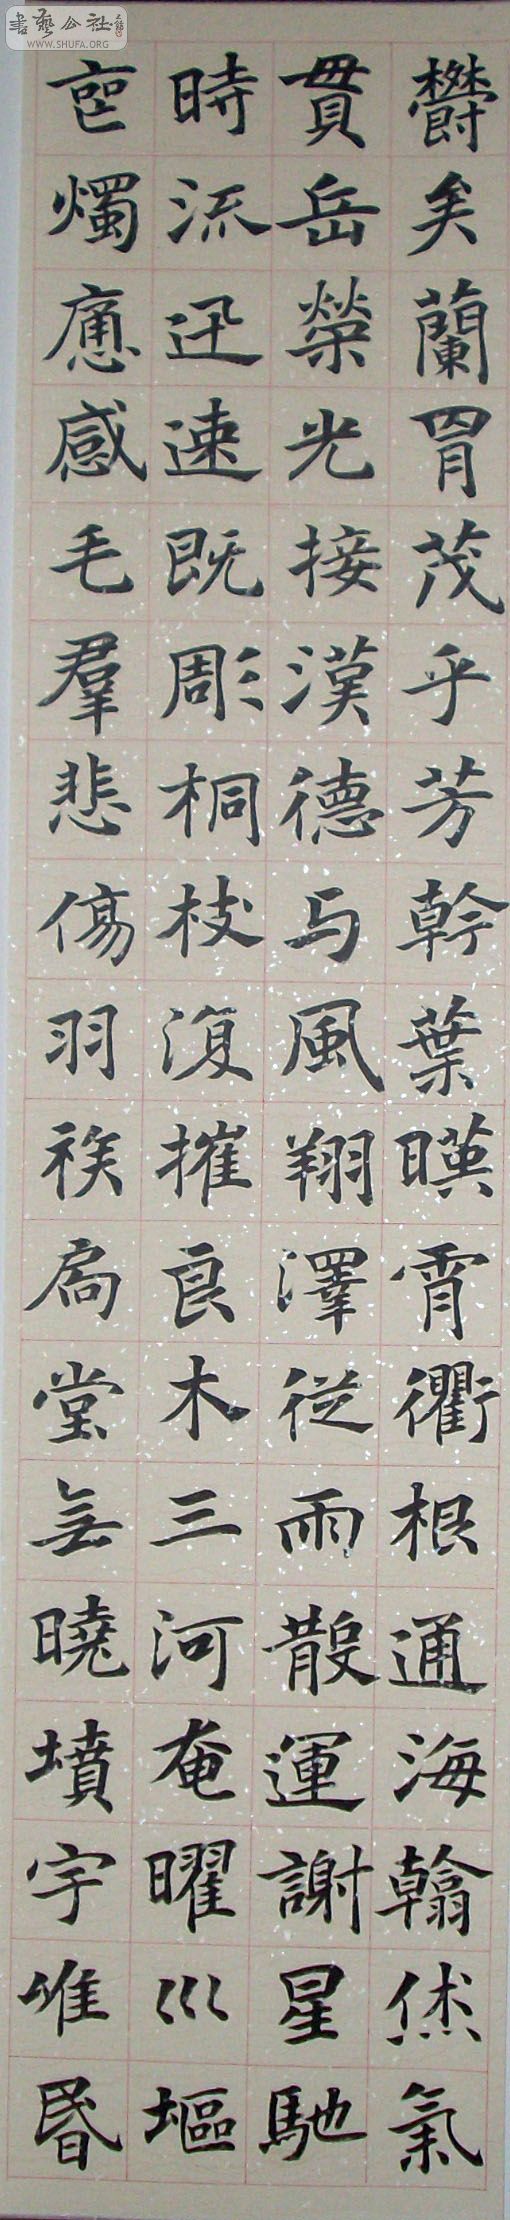 欝矣蘭胃茂乎芳幹葉暎霄衢根通海翰烋氣
貫岳榮光接漢德与風翔澤從雨散運謝星馳
時流迅速既彫桐枝復摧良木三河奄曜巛塸
燭應感毛羣悲傷羽族扃堂無曉墳宇唯昏
書藝公社
WWW.SHUFA.ORG